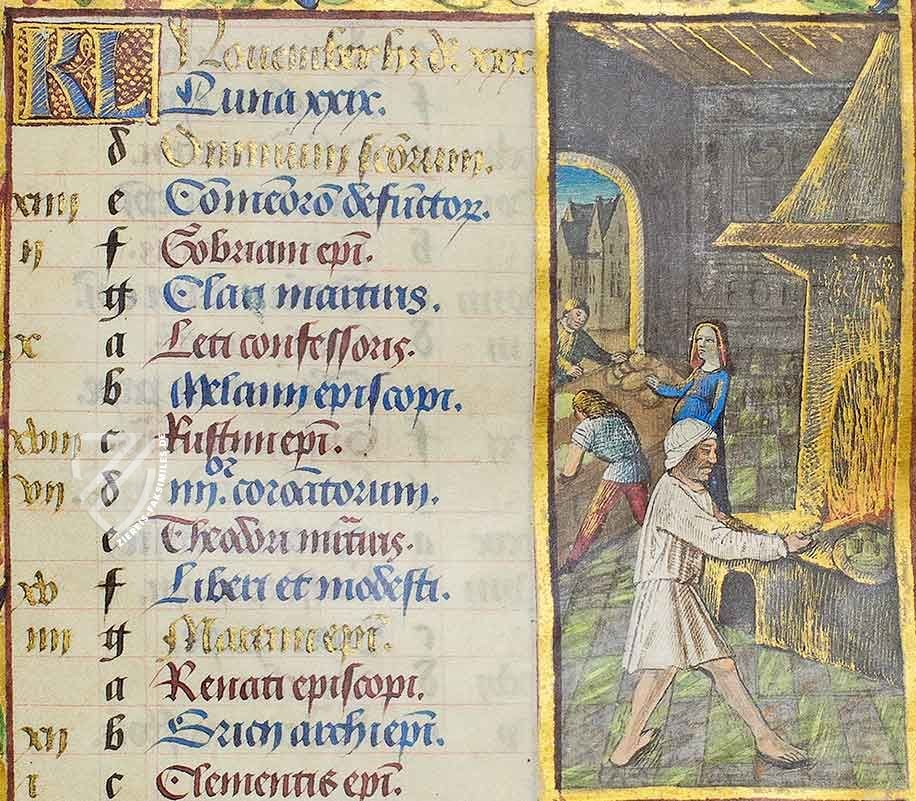 KL Nouember h̅t d̅. xxx
Luna xxix.
d Omnium sc̅orum.
xiii e Com̅eor̅o defu̅ctoꝝ.
ii f Gobriani ep̅i.
g Clari martiris.
x a Leti confessoris.
b Melanii episcopi.
xviii c Rustini ep̅i.
vii d iiii.or coro̅atorum.
e Theodori mr̅tiris.
xv f Liberi et modesti.
iiii g Martini ep̅i.
a Renati episcopi.
xii b Bricii archiep̅i.
i c Clementis ep̅i.
ZIEREIS-FAKSIMILES.DE